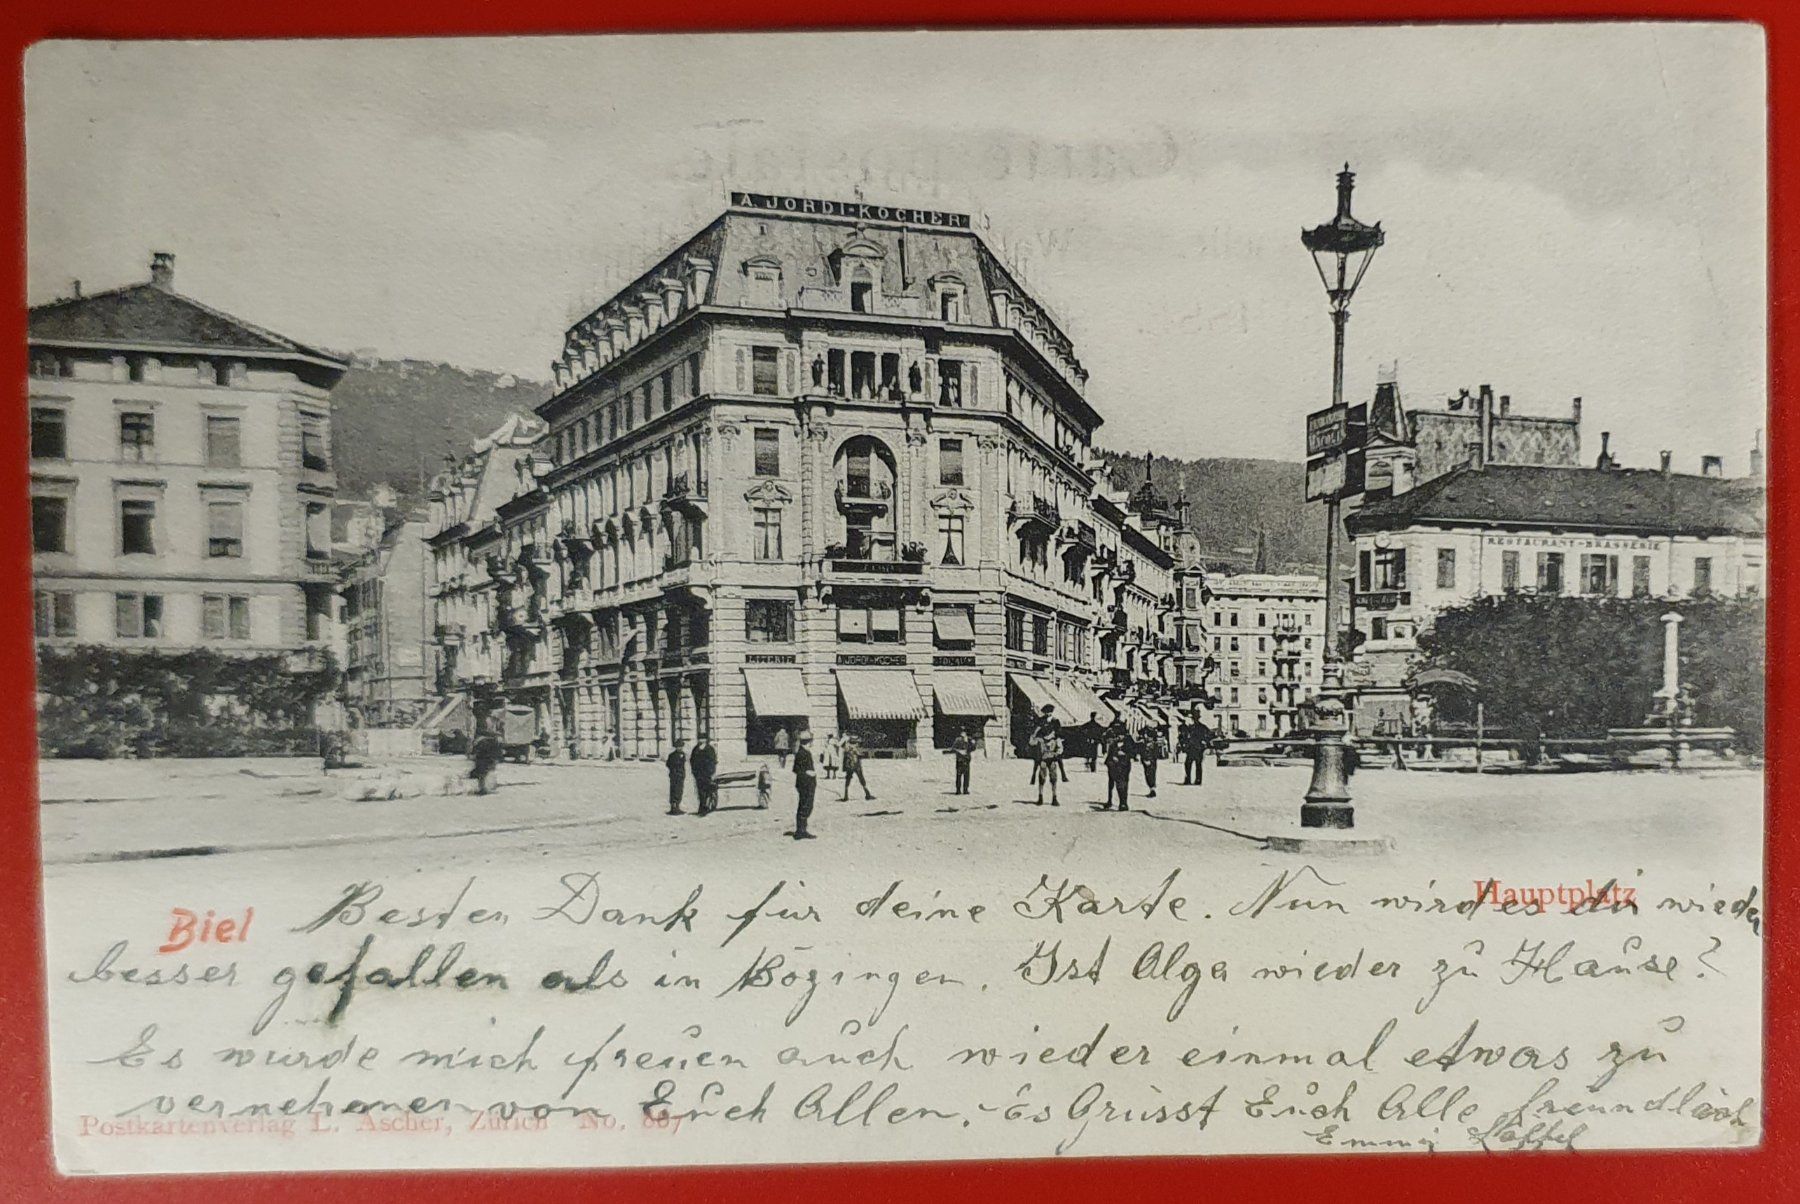 A. JORDI-KOCHER
RESTAURANT-BRASSERIE
A. JORDI-KOCHER
Biel
Hauptplatz
Besten Dank für deine Karte. Nun wird es dir wieder
besser gefallen als in Bözingen. Ist Olga wieder zu Hause?
Es wurde mich freuen auch wieder einmal etwas zu
vernehmen von Euch Allen. Es Grüsst Euch Alle freundlich
Emmi
Postkartenverlag L. Ascher, Zürich No. 667